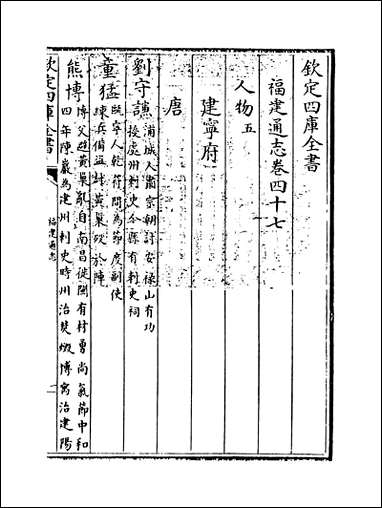 欽定四庫全書
福建通志卷四十七
人物五
建寧府
唐
劉守謙浦城人肅宗朝討安祿山有功
授處州刺史今縣有刺史祠
童猛甌寧人乾符間為節度副使
練兵備盜討黃巢歿於陣
熊博博父避黃巢亂自南昌徙閩有材勇尚氣節中和
四年陳巖為建州刺史時州治焚燬博寓治建陽
欽定四庫全書
福建通志
一